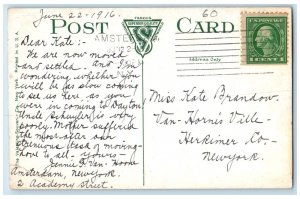 June 22-1916.
60
POST CARD
FAMOUS
AMSTERDAM
Address Only
1 CENT 1
Dear Kate:-
We are now moved
and settled. and I'm
wondering whether you
will be as slow coming
to see us here as you
ever in coming to Dayton
Uncle Schuyler is very
poorly. Mother suffered
the most after our
strenuous week of moving-
Love to all - yours -
Jennie D. Van Horne
Amsterdam, New york.
2 Academy street.
Miss Kate Brandow.
Van-Horn's Ville
Herkimer Co-
New york.